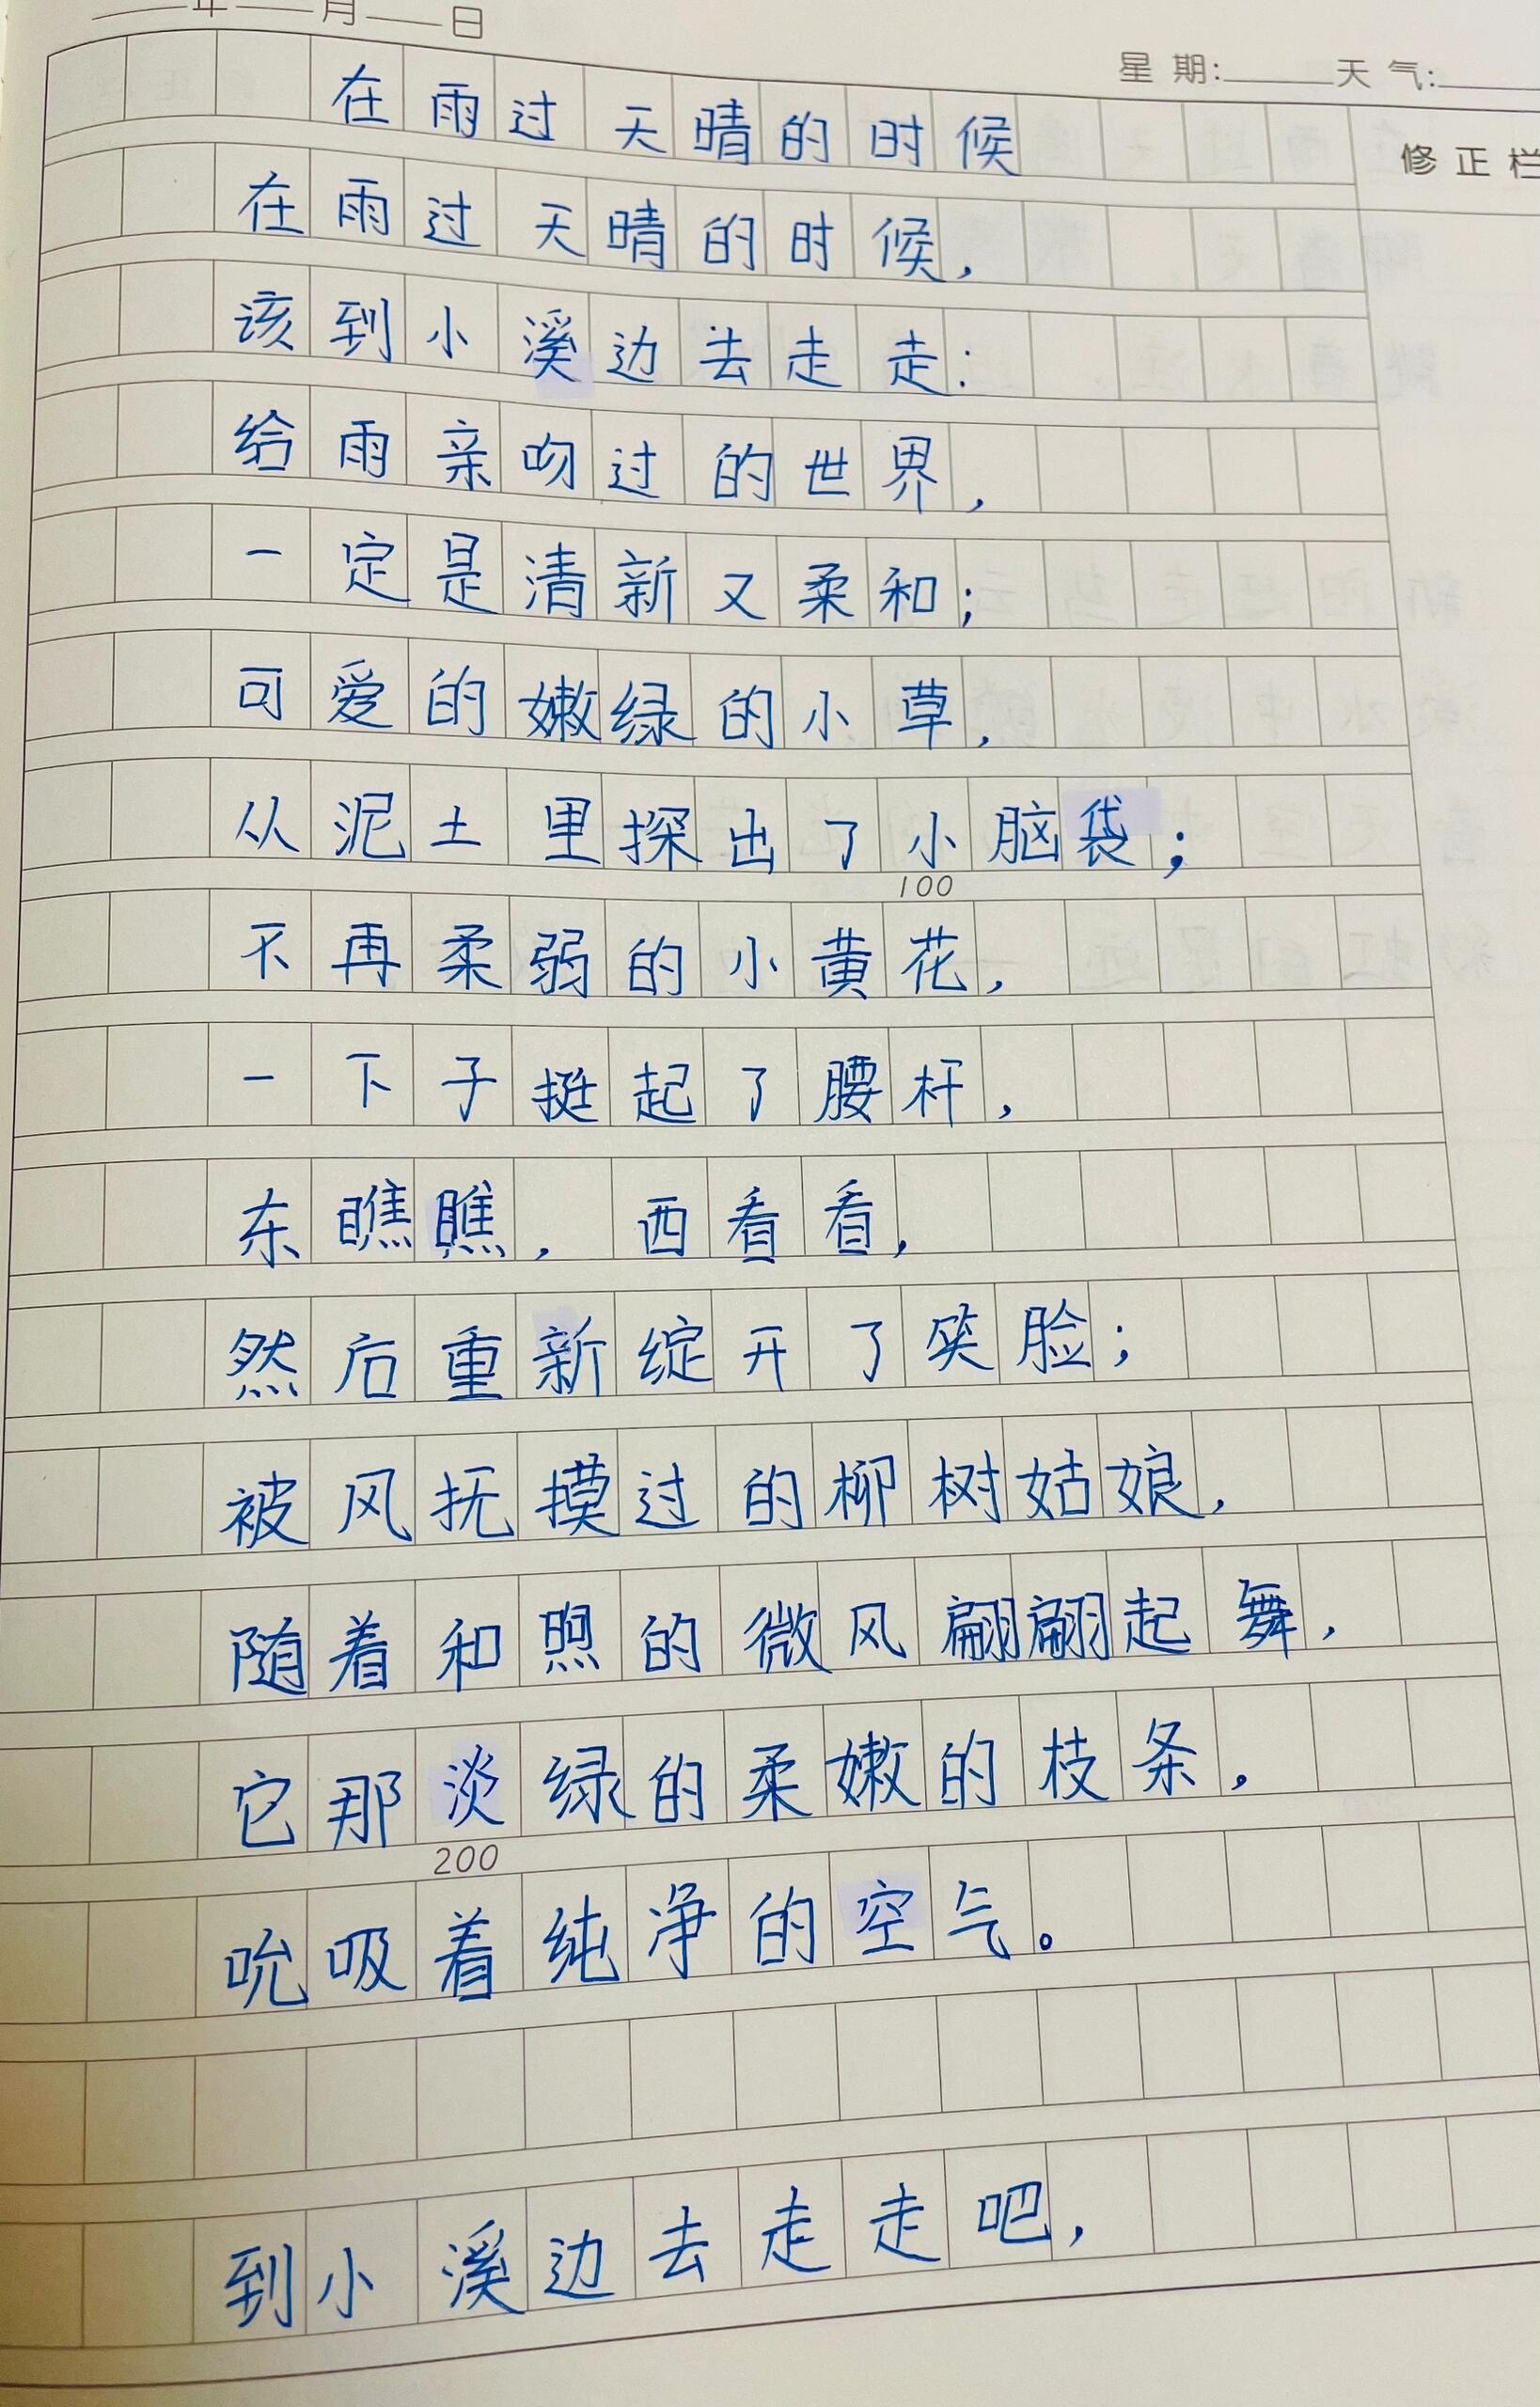 年 月 日
星期: 天气:
修正栏
在雨过天晴的时候
在雨过天晴的时候,
该到小溪边去走走:
给雨亲吻过的世界,
一定是清新又柔和;
可爱的嫩绿的小草,
从泥土里探出了小脑袋;
100
不再柔弱的小黄花,
一下子挺起了腰杆,
东瞧瞧,西看看,
然后重新绽开了笑脸;
被风抚摸过的柳树姑娘,
随着和煦的微风翩翩起舞,
它那淡绿的柔嫩的枝条。
200
吮吸着纯净的空气。
到小溪边去走走吧,